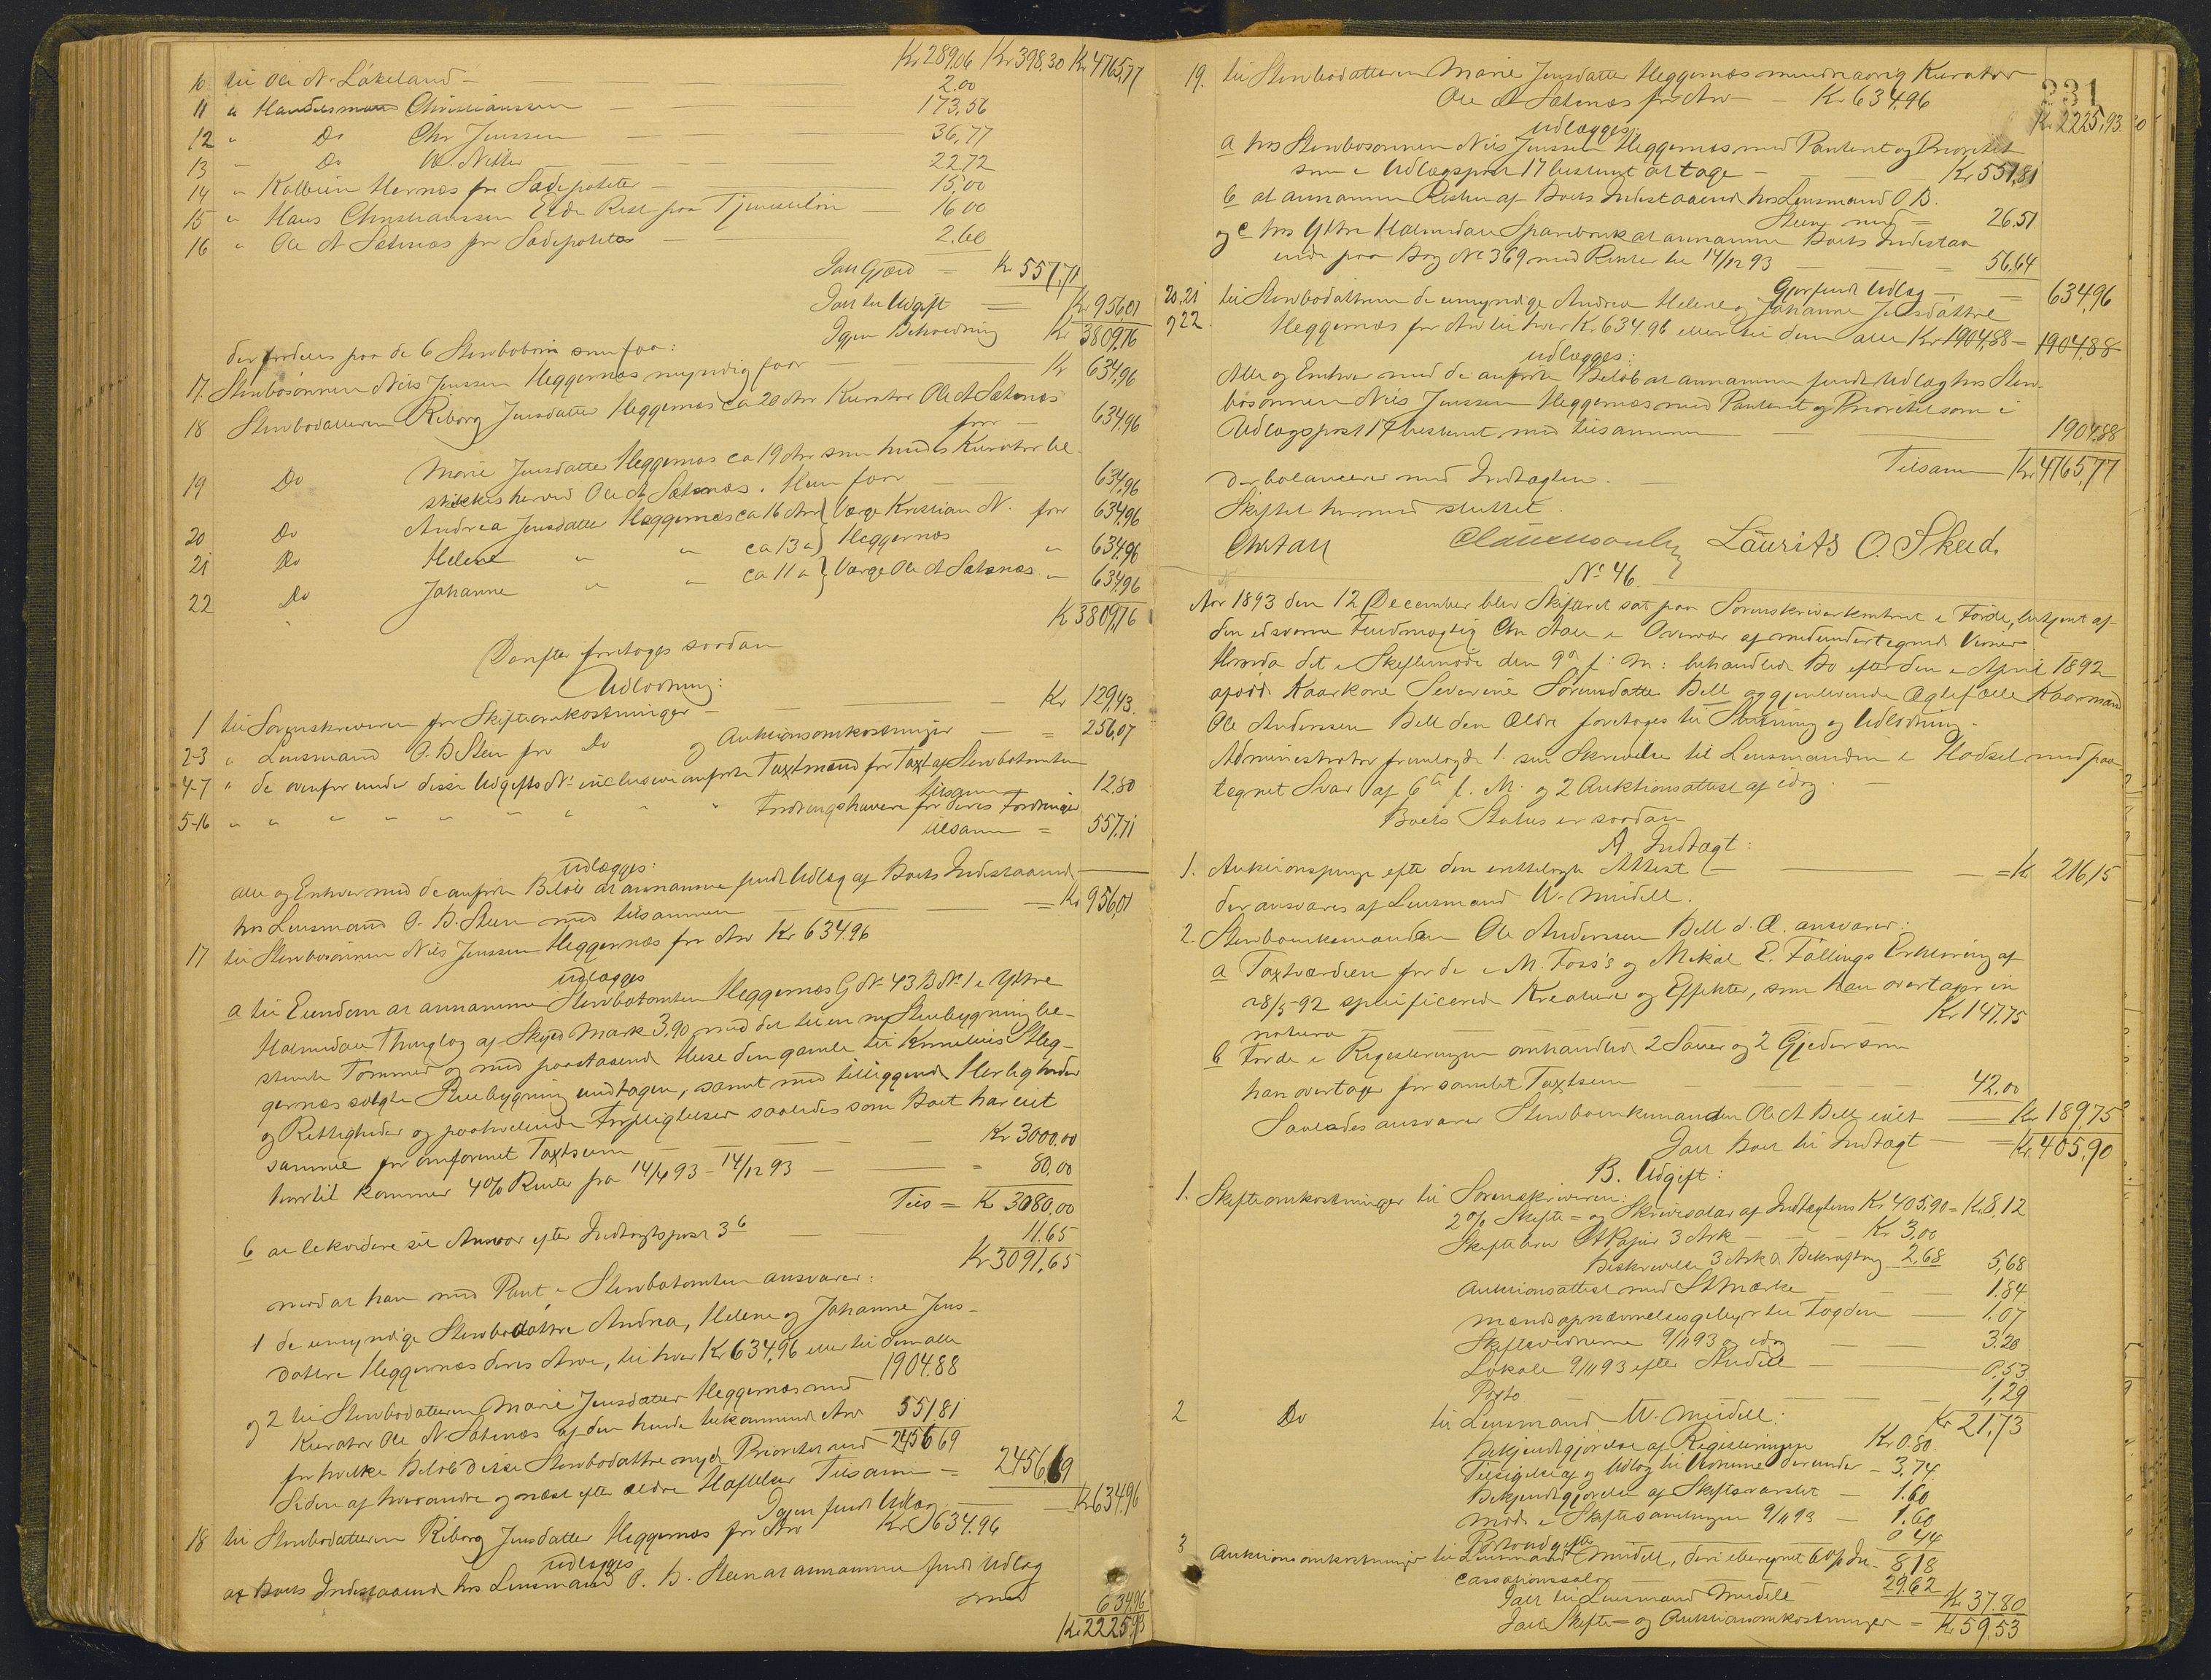 Kr 289,06 Kr 398,30 Kr 4765,77
10 til Ole N. Lökeland – 2.00
11 " Handelsmand Christianssen – 173,56
12 " Do Chr Jenssen – 36,77
13 " Do W. Nitter – 22,72
14 " Kolbein Hornæs for Sædepoteter – 15,00
15 " Hans Christianssen Eide Rest paa Tjenestelön – 16.00
16 " Ole A Sætenæs for Sædepoteter – 2.60
Jalt Gjæld = Kr 557,71
Jalt til Udgift = Kr 956,01
Igjen Beholdning Kr 3809,76
der fordeles paa de 6 Stervbobörn som faar:
17. Stervbosönnen Nils Jenssen Heggernæs myndig faar Kr 634,96
18 Stervbodatteren Riborg Jensdatter Heggernæs ca 20 Aar Kurator Ole A Sætenæs
faar – 634,96
19 Do Marie Jensdatter Heggernæs ca 19 Aar som hendes Kurator be-
skikkes herved Ole A Sætenæs. Hun faar 634,96
20 Do Andrea Jensdatter Heggernæs ca 16 Aar } Værge Kristian N. faar 634,96
21 Do Helene " " ca 13 a } Heggernæs " 634,96
22 Do Johanne " " ca 11 a } Værge Ole A Sætenæs " 634,96
Kr 3809,76
Derefter foretoges saadan
Udlodning:
1 til Sorenskriveren for Skifteomkostninger – Kr 129,43
2-3 " Lensmand O. B. Steen for Do og Auktionsomkostninger – = 256,07
4-7 " de ovenfor under disse Udgifts No inclusive anförte Taxtmænd for Taxt af Stervbotomten
tilsammen 12.80
5-16 " " " " " " " Fordringshavere for deres Fordringer
tilsamm = 557,71
udlægges:
alle og Enhver med de anförte Belöb at annamme fuldt Udlæg af Boets Indestaaende
hos Lensmand O. B. Steen med tilsammen = Kr 956,01
17 til Stervbosönnen Nils Jenssen Heggernæs for Arv Kr 634.96
udlægges
a til Eiendom at annamme Stervbotomten Heggernæs G. No 43 B. No 1 i Ytre
Holmedals Thinglag af Skyld Mark 3,90 med det til en ny Stuebygning be-
stemte Tömmer og med paastaaende Huse den gamle til Kornelius Heg-
gernæs solgte Stuebygning undtagen, samt med tilliggende Herligheder
og Rettigheder og paahvilende Forpligtelser saaledes som Boet har eiet
samme for omforenet Taxtsum Kr 3000.00
hvortil kommer 4% Rente fra 14/4 93 – 14/12 93 – = 80,00
Tils = Kr 3080,00
b at likvidere sit Ansvar efter Indtægtspost 3 b 11.65
Kr 3091,65
mod at han med Pant i Stervbotomten ansvarer:
1 de umyndige Stervbodöttre Andrea, Helene og Johanne Jens-
döttre Heggernæs deres Arve, til hver Kr 634,96 eller til dem alle
1904.88
og 2 til Stervbodatteren Marie Jensdatter Heggernæs med
Kurator Ole A. Sætenæs af den hende tilkommende Arv 551.81
for hvilke Belöb disse Stervbodöttre nyde Prioritet ved 2456 69
Siden af hverandre og næst efter ældre Hæftelser Tilsamm = 2456 69
Igjen fuldt Udlæg – = Kr 634,96
18 til Stervbodatteren Riborg Jensdatter Heggernæs for Arv Kr 634.96
udlægges
af Boets Indestaaende hos Lensmand O. B. Steen at annamme fuldt Udlæg
med 634,96
Kr 2225,93
231
19. til Stervbodatteren Marie Jensdatter Heggernæs mindreaarig Kurator
Ole A Sætenæs for Arv – Kr 634,96
Kr 2225,93
udlægges:
a hos Stervbosönnen Nils Jenssen Heggernæs med Panteret og Prioritet
som i Udlægspost 17 bestemt at tage – Kr 551,81
b at annamme Resten af Boets Indestaaende hos Lensmand O B.
Steen med = 26.51
og c hos Ytre Holmedals Sparebank at annamme Boets Indestaa-
ende paa Bog No 369 med Renter til 14/12 93 = 56,64
Gjör fuldt Udlæg – = 634,96
20, 21 til Stervbodöttrene de umyndige Andrea Helene og Johanne Jensdöttre
og 22. Heggernæs for Arv til hver Kr 634.96 eller til dem alle Kr 1904,88 = 1904,88
udlægges:
Alle og Enhver med de anförte Belöb at annamme fuldt Udlæg hos Sterv-
bosönnen Nils Jenssen Heggernæs med Panteret og Prioritet som i
Udlægspost 17 bestemt med tilsammen 1904.88
Tilsamm Kr 4765,77
der balancerer med Indtægten.
Skiftet hermed sluttet.
Chr Aall Laurits O. Skud.
No 46.
Aar 1893 den 12 December blev Skifteret sat paa Sorenskriverkontoret i Förde, betjent af
den edsvorne Fuldmægtig Chr Aall i Overvær af medundertegnede Vidner
Hvorda det i Skiftemöde den 9de f: M: behandlede Bo efter den i April 1892
afdöde Kaarkone Severine Sörensdatter Bell og gjenlevende Ægtefælle Kaarmand
Ole Anderssen Bell den Ældre foretoges til Slutning og Udlodning.
Administrator fremlagde 1. sin Skrivelse til Lensmanden i Hodsel med paa-
tegnet Svar af 6te f. M. og 2 Auktionsattest af idag
Boets Status er saadan
A Indtægt:
1. Auktionspenge efter den ovenfremlagte Attest – = Kr 216,15
der ansvares af Lensmand W. Meidell.
2. Stervboenkemanden Ole Anderssen Bell d. Æ. ansvarer:
a Taxtværdien for de i M. Foss's og Mikal E. Fallings Erklæring af
28/5 92 specificerede Kreature og Effekter, som han overtager in
natura Kr 147,75
b For de i Registreringen omhandlede 2 Sauer og 2 Gjeder som
han overtager for samlet Taxtsum 42,00
Saaledes ansvarer Stervboenkemanden Ole A Bell ialt Kr 189,75
Jalt Boets til Indtægt = Kr 405,90
B. Udgift:
1. Skifteomkostninger til Sorenskriveren:
2% Skifte- og Skriversalær af Indtægtens Kr 405,90 = Kr 8,12
Skiftebrev St Papir 3 Ark – Kr 3,00
Beskrivelse 3 Ark & Bekræftng 2,68 5,68
Auktionsattest med St Mærke 1.84
Mændsopnævnelsesgebyr til Fogden – 1.07
Skiftevidnerne 9/11 93 og idag 3.20
Lokale 9/11 93 efter Andel 0,53
Porto 1,29
Kr 21,73
2 Do til Lensmand W. Meidell:
Bekjendtgjörelse af Registreringen Kr 0.80.
Tilsigelse af og Udlæg til Vidnerne derunder – 3,74
Bekjendtgjörelse af Skiftevarslet – 1.60
Möde i Skiftesamlingen 9/11 93 – 1.60
Portoudgifter 0 44
8,18
3 Auktionsomkostninger til Lensmand Meidell, deri iberegnet 6% In-
cassationssalær 29,62
Jalt til Lensmand Meidell Kr 37.80
Jalt Skifte- og Auktionsomkostninger = Kr 59,53